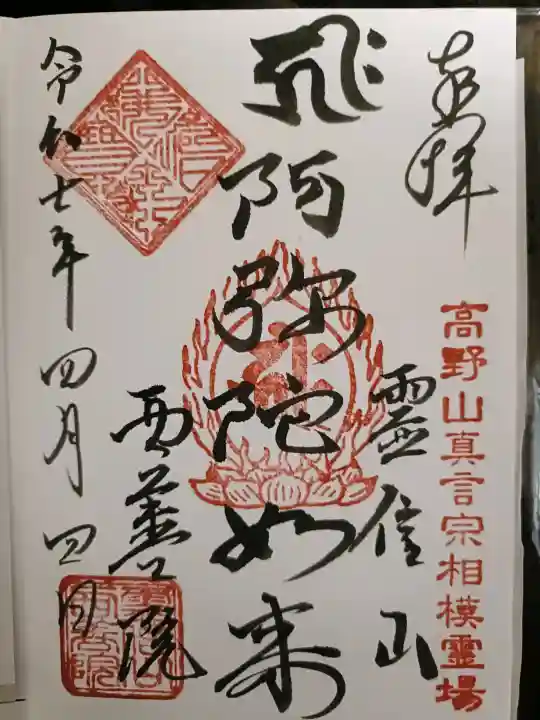 奉拝
高野山真言宗相模霊場
霊信山
飛阿弥陀如来
西善院
令和七年四月四日